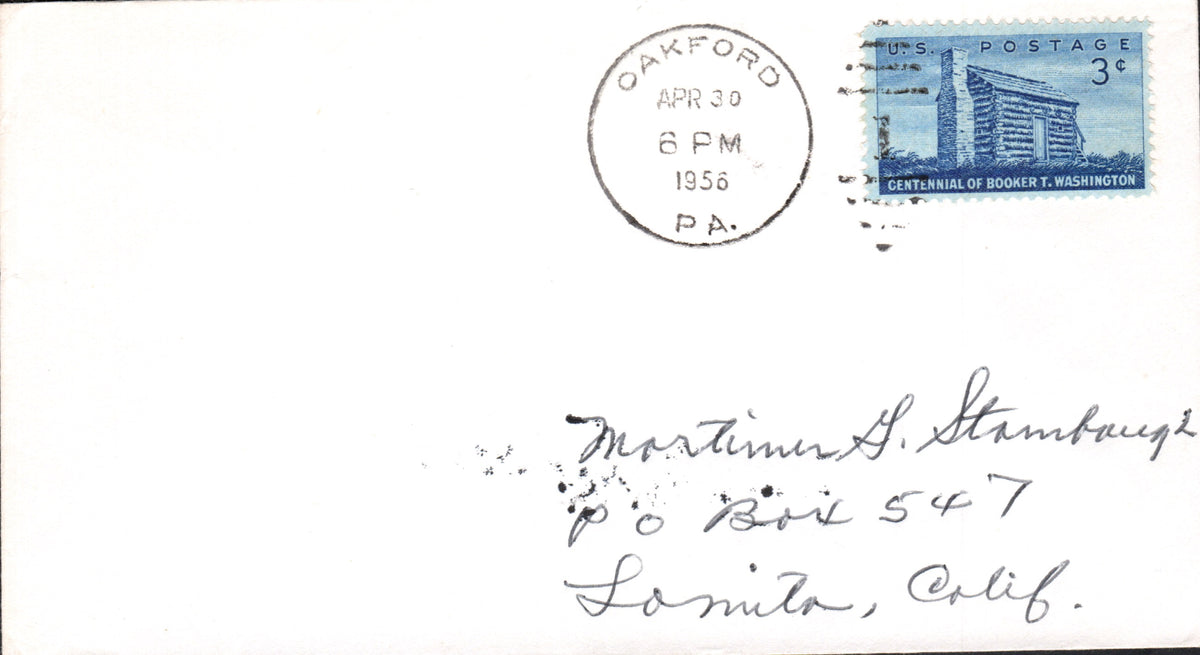 OAKFORD
APR 30
6 PM
1956
PA.
U.S. POSTAGE
3¢
CENTENNIAL OF BOOKER T. WASHINGTON
Mortimer G. Stambaugh
PO Box 547
Lomita, Calif.